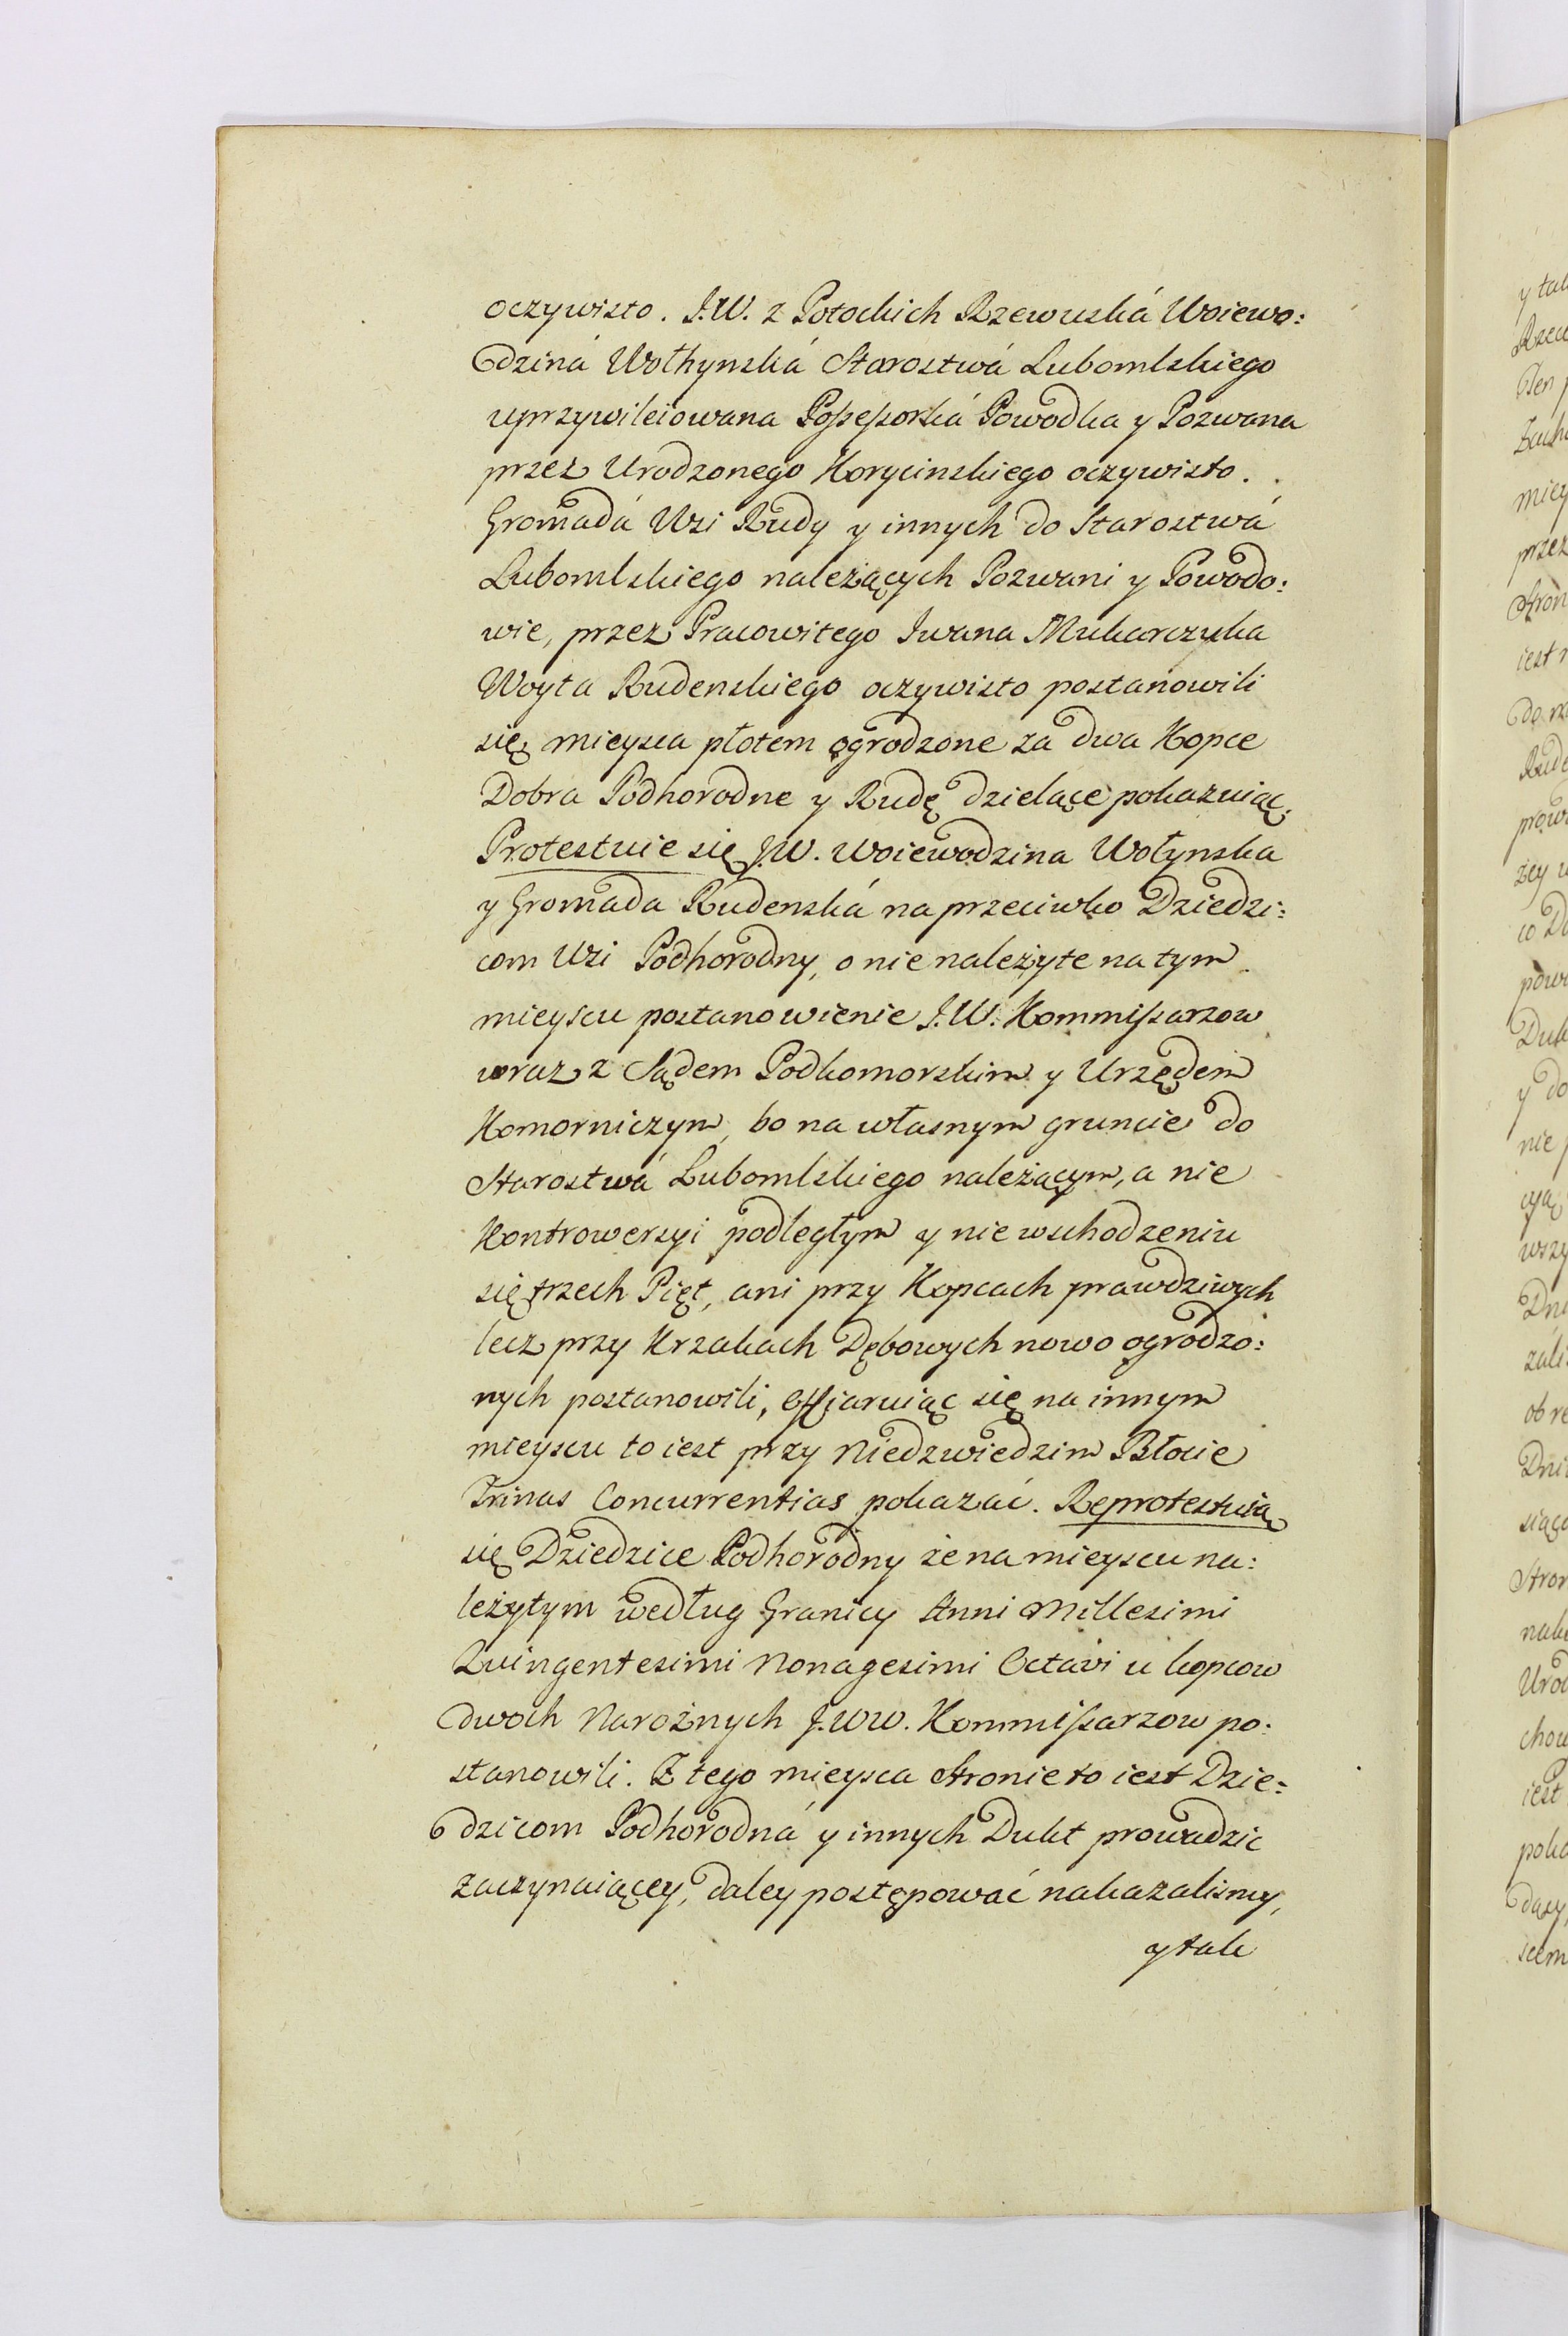 oczywisto. J.W. z Potockich Rzewuská Woiewo:
dziná Wołhynská Starostwá Lubomlskiego
uprzywileiowana Possessorká Powodka y Pozwana
przez Urodzonego Korycinskiego oczywisto.
Gromadá Wsi Rudy y innych do Starostwá
Lubomlskiego należących Pozwani y Powodo:
wie, przez Pracowitego Iwana Mukarczyka
Woyta Rudenskiego oczywisto postanowili
się mieysca płotem ogrodzone za dwa Kopce
Dobra Podhorodne y Rudę dzielące pokazuiąc.
Protestuie się J.W. Woiewodzina Wołynska
y Gromada Rudenská naprzeciwko Dziedzi:
com Wsi Podhorodny, o nienależyte na tym
mieyscu postanowienie J.W. Kommissarzow
wraz z Sądem Podkomorskim y Urzędem
Komorniczym, bo na własnym gruncie do
Starostwá Lubomlskiego należącym, a nie
Kontrowersyi podległym y nie wschodzeniu
się trzech Pięt, ani przy Kopcach prawdziwych
lecz przy Krzakach Dębowych nowo ogrodzo:
nych postanowili, offiaruiąc się na innym
mieyscu to iest przy Niedzwiedzim Błocie
Trinas Concurrentias pokazać. Reprotestuią
się Dziedzice Podhorodny że na mieyscu na:
leżytym według Granicy Anni Millesimi
Quingentesimi Nonagesimi Octavi u kopcow
dwoch Narożnych J.WW. Kommissarzow po:
stanowili. Z tego mieysca Stronie to iest Dzie:
dzicom Podhorodná y innych Dukt prowadzic
zaczynaiącey, daley postępować nakazalismy,
y tak